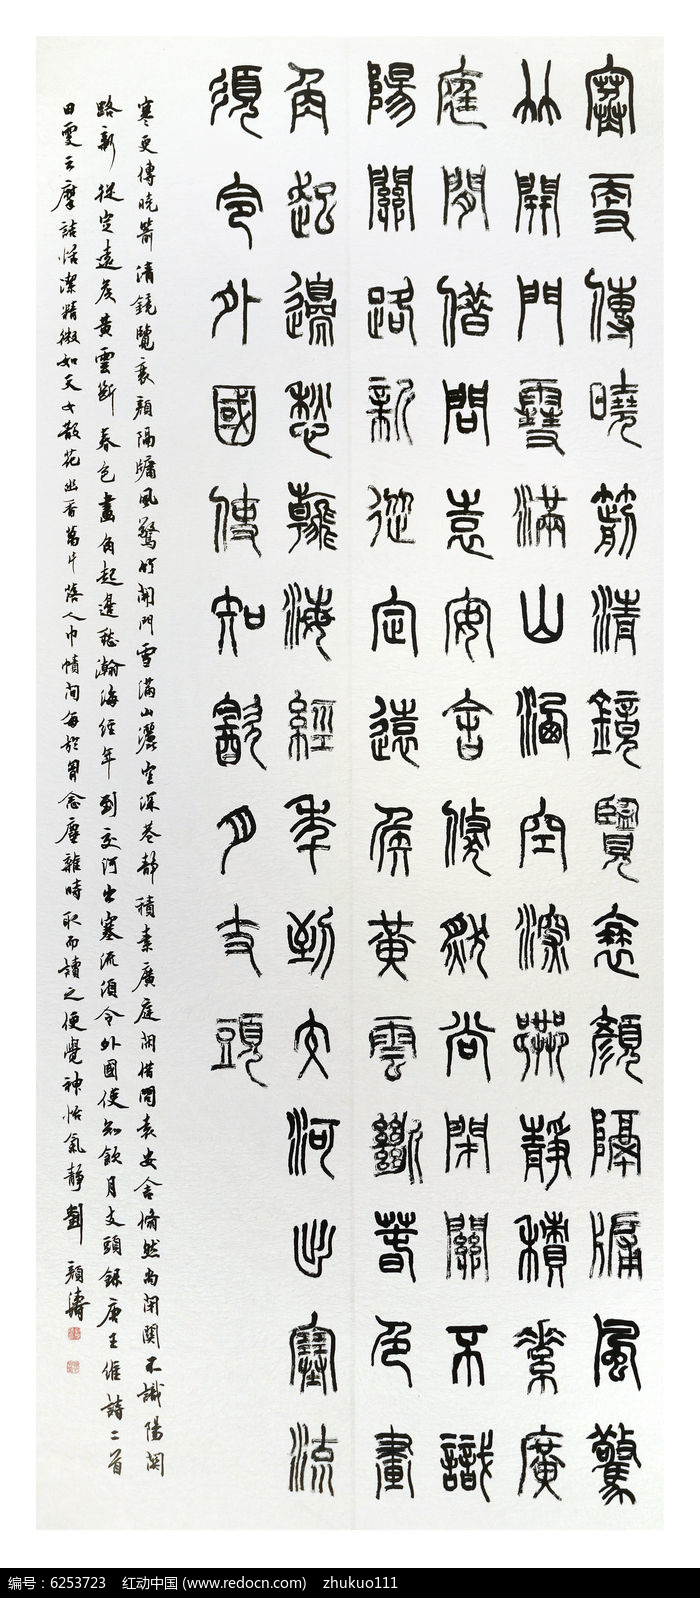 寒更傳曉箭清鏡覽衰顏隔牖風驚
竹開門雪滿山灑空深巷靜積素廣
庭閒借問袁安舍翛然尚閉關不識
陽關路新從定遠侯黃雲斷春色畫
角起邊愁瀚海經年到交河出塞流
須令外國使知飲月支頭
寒更傳曉箭清鏡覽衰顏隔牖風驚竹開門雪滿山灑空深巷靜積素廣庭閒借問袁安舍翛然尚閉關不識陽關
路新從定遠侯黃雲斷春色畫角起邊愁瀚海經年到交河出塞流須令外國使知飲月支頭錄唐王維詩二首
田雯云摩詰恬潔精微如天女散花幽香萬片落人巾幘間每於胸念塵雜時取而讀之便覺神怡氣靜劉顏濤
编号：6253723 红动中国 (www.redocn.com) zhukuo111